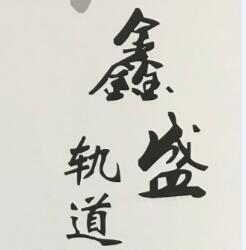 鑫盛
轨道